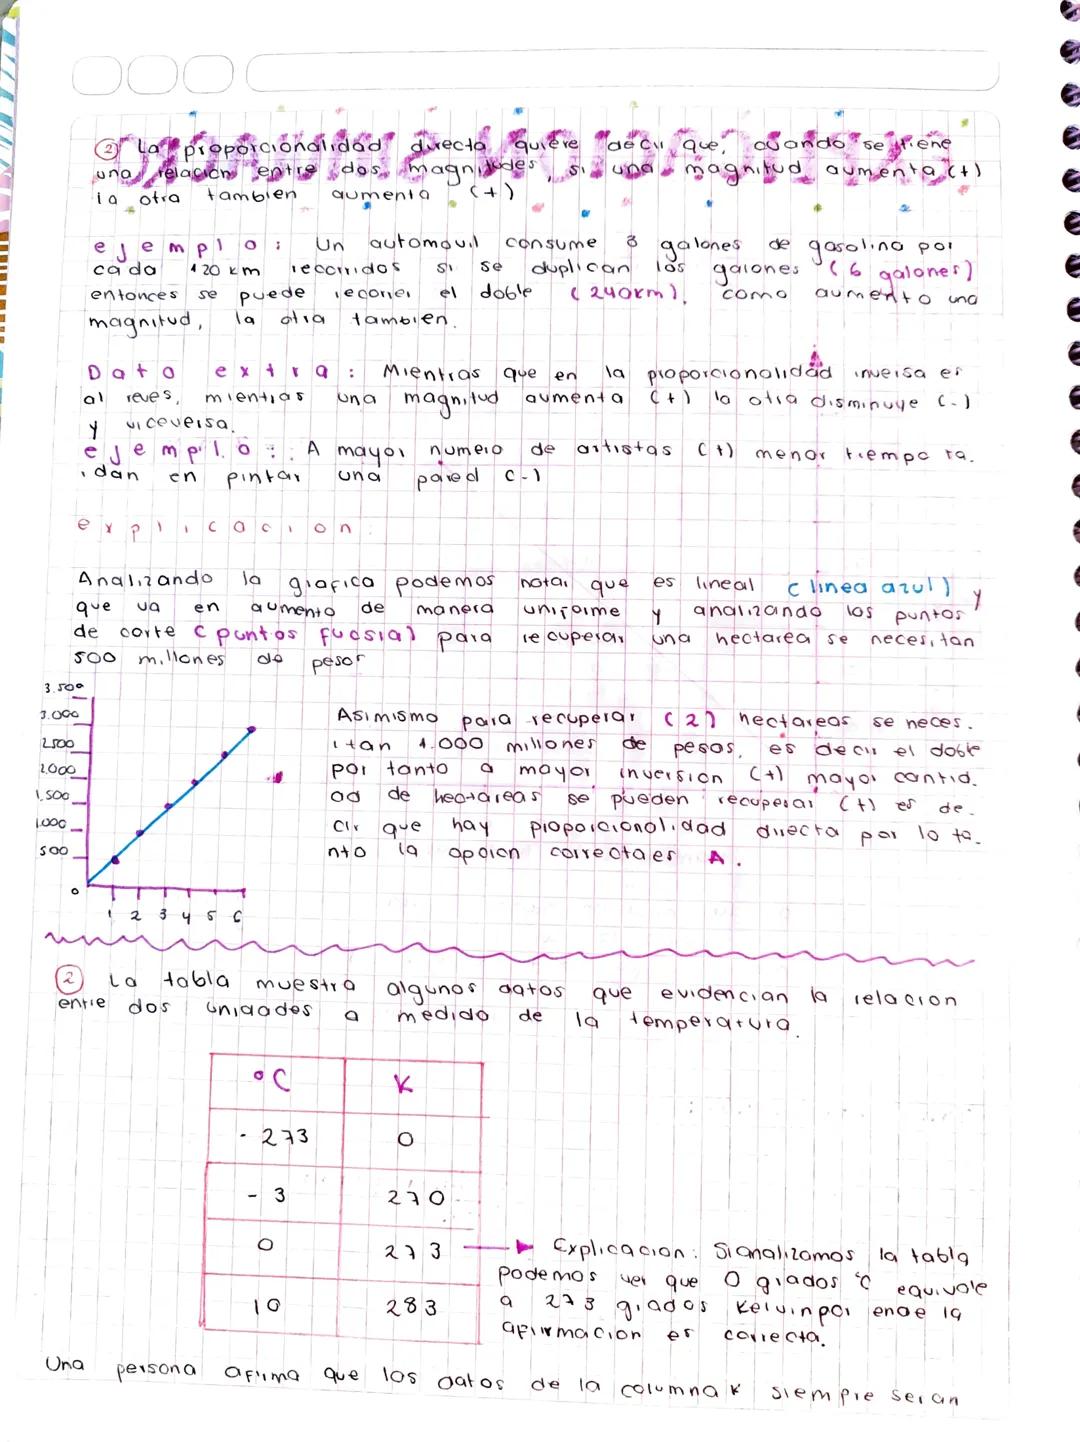 ② La proporcionalidad directa quiere decir que, cuando se tiene
una relación entre dos magnitudes, si una magnitud aumenta (+)
la otra tambien aumenta (+)
ejemplo: Un automovil consume 3 galones de gasolina por
cada 120 km recorridos si se duplican los galones (6 galones)
entonces se puede recorrer el doble (240km), como aumento una
magnitud, la otra tambien.
Dato extra: Mientras que en la proporcionalidad inversa es
al reves, mientras una magnitud aumenta (+) la otra disminuye (-)
y viceversa.
ejemplo: A mayor numero de artistas (+) menor tiempo ta.
rdan en pintar una pared (-)
explicacion:
Analizando la grafica podemos notar que es lineal (linea azul) y
que va en aumento de manera uniforme y analizando los puntos
de corte (puntos fucsia) para recuperar una hectarea se necesitan
500 millones de pesos
3.500
3.000
2.500
2.000
1.500
1.000
500
0
1 2 3 4 5 6
Asimismo para recuperar (2) hectareas se neces.
itan 1.000 millones de pesos, es decir el doble
por tanto a mayor inversion (+) mayor cantid.
ad de hectareas se pueden recuperar (+) es de.
cir que hay proporcionalidad directa por lo ta.
nto la opcion correcta es A.
② La tabla muestra algunos datos que evidencian la relacion
entre dos unidades a medido de la temperatura.
°C K
- 273 0
- 3 270
0 273
10 283
Explicacion: Si analizamos la tabla
podemos ver que 0 grados °C equivale
a 273 grados Kelvin por ende la
afirmacion es correcta.
Una persona afirma que los datos de la columna K siempre seran